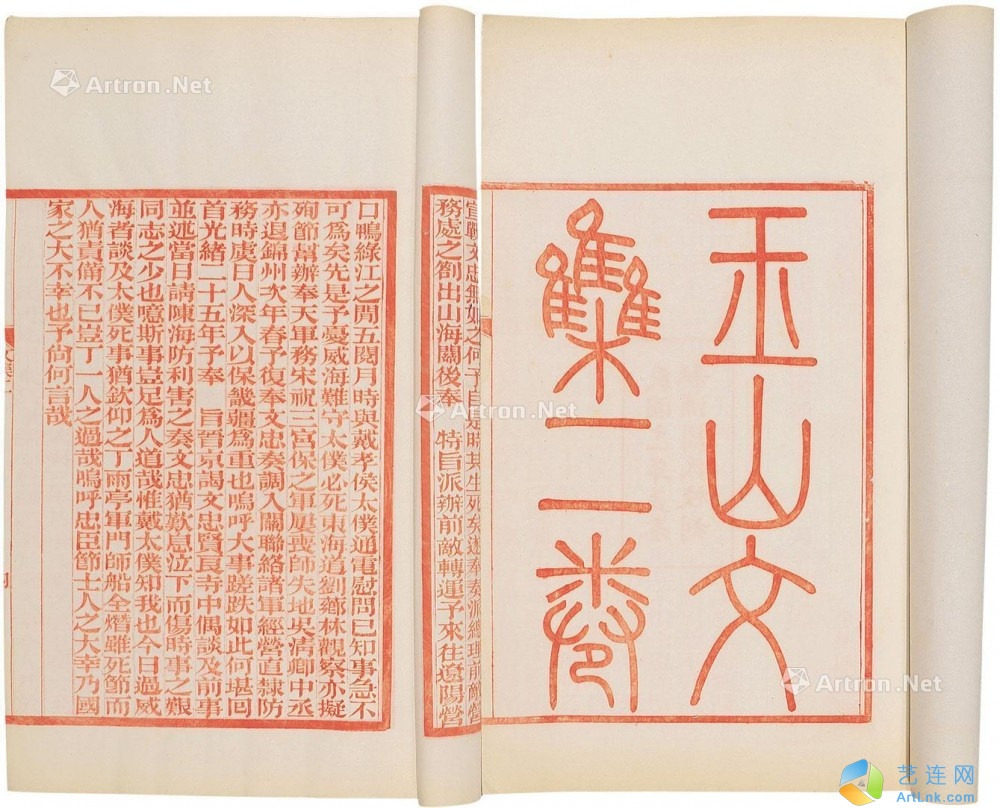 玉山文
集二卷
宣戰文忠無如之何予自是時其生死矣遂奉奏派總理前敵營
務處之劄出山海關後奉 特旨派辦前敵轉運予來往遼陽營
口鴨綠江之間五閱月時與戴孝侯太僕通電慰問已知事急不
可爲矣先是予憂威海難守太僕必死東海道劉薌林觀察亦擬
殉節幫辦奉天軍務宋祝三宮保之軍屢喪師失地吳清卿中丞
亦退錦州次年春予復奉文忠奏調入關聯絡諸軍經營直隸防
務時虞日人深入以保畿疆爲重也嗚呼大事蹉跌如此何堪回
首光緒二十五年予奉 旨晉京謁文忠賢良寺中偶談及前事
並述當日請陳海防利害之奏文忠猶歎息泣下而傷時事之艱
同志之少也噫斯事豈足爲人道哉惟戴太僕知我也今日過威
海耆談及太僕死事猶欽仰之丁雨亭軍門師船全熸雖死節而
人猶責備不已豈丁一人之過哉嗚呼忠臣節士人之大幸乃國
家之大不幸也予尚何言哉
Artron.Net
Artron.Net
Artron.Net
艺连网
ArtLnk.com